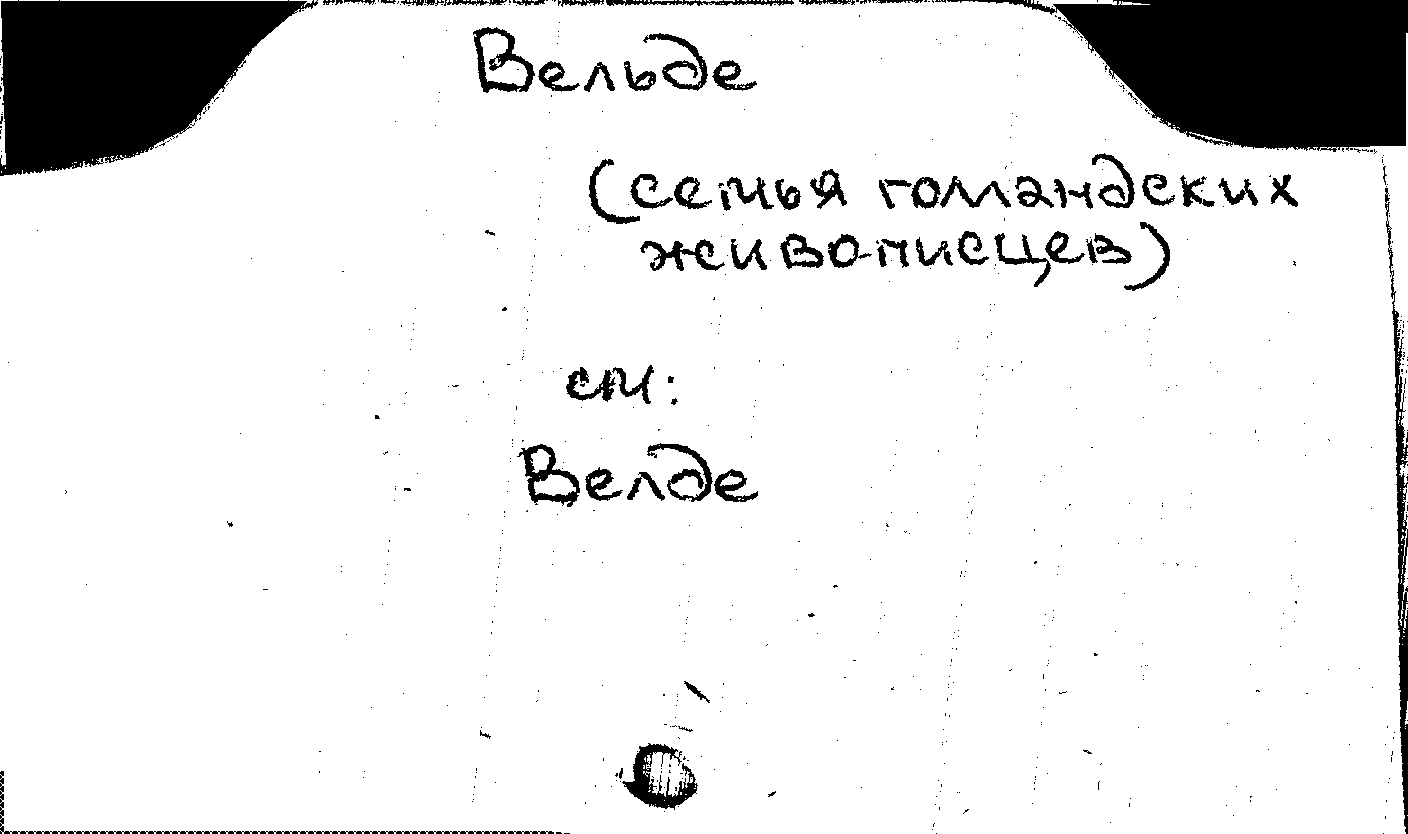 Вельде
(семья голландских
живописцев)
см:
Велде